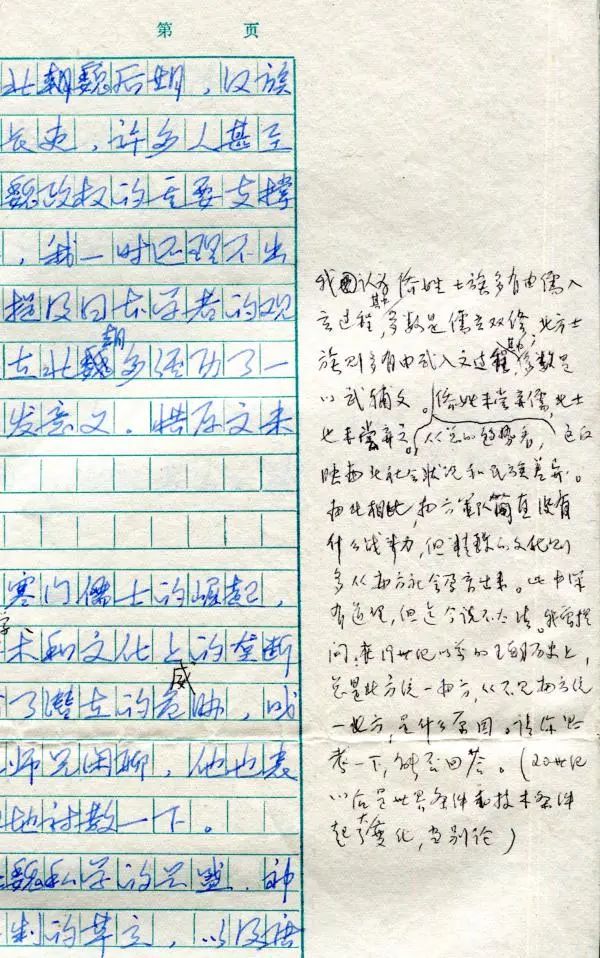 第 页
北朝魏后期，汉族
长史，许多人甚至
魏政权的重要支撑
，我一时还理不出
提及日本学者的观
在北朝多经功了一
发意义。惜原文未
寒门儒士的崛起，
术和文化上的垄断
了潜在的威胁，或
师兄闲聊，他也表
地讨教一下。
魏私学的兴盛，神
制的草立，以及唐
我认为侨姓士族多有由儒入
玄过程，其多数是儒玄双修，北方士
族则多有由武入文过程，其多数是
以武辅文。侨姓未尝弃儒，北士
也未尝弃文。从总的趋势看，这反
映南北社会状况和民族差异。
南北相比，南方军队简直没有
什么战斗力，但精致的文化，则
多从南方社会孕育出来。此中深
有道理，但迄今说不太清。我曾提
问，廿世纪以前的王朝历史上，
总是北方统一南方，从不见南方统
一北方，是什么原因。请你思
考一下，能否回答。（20世纪
以后是世界条件和技术条件
起了大变化，当别论）